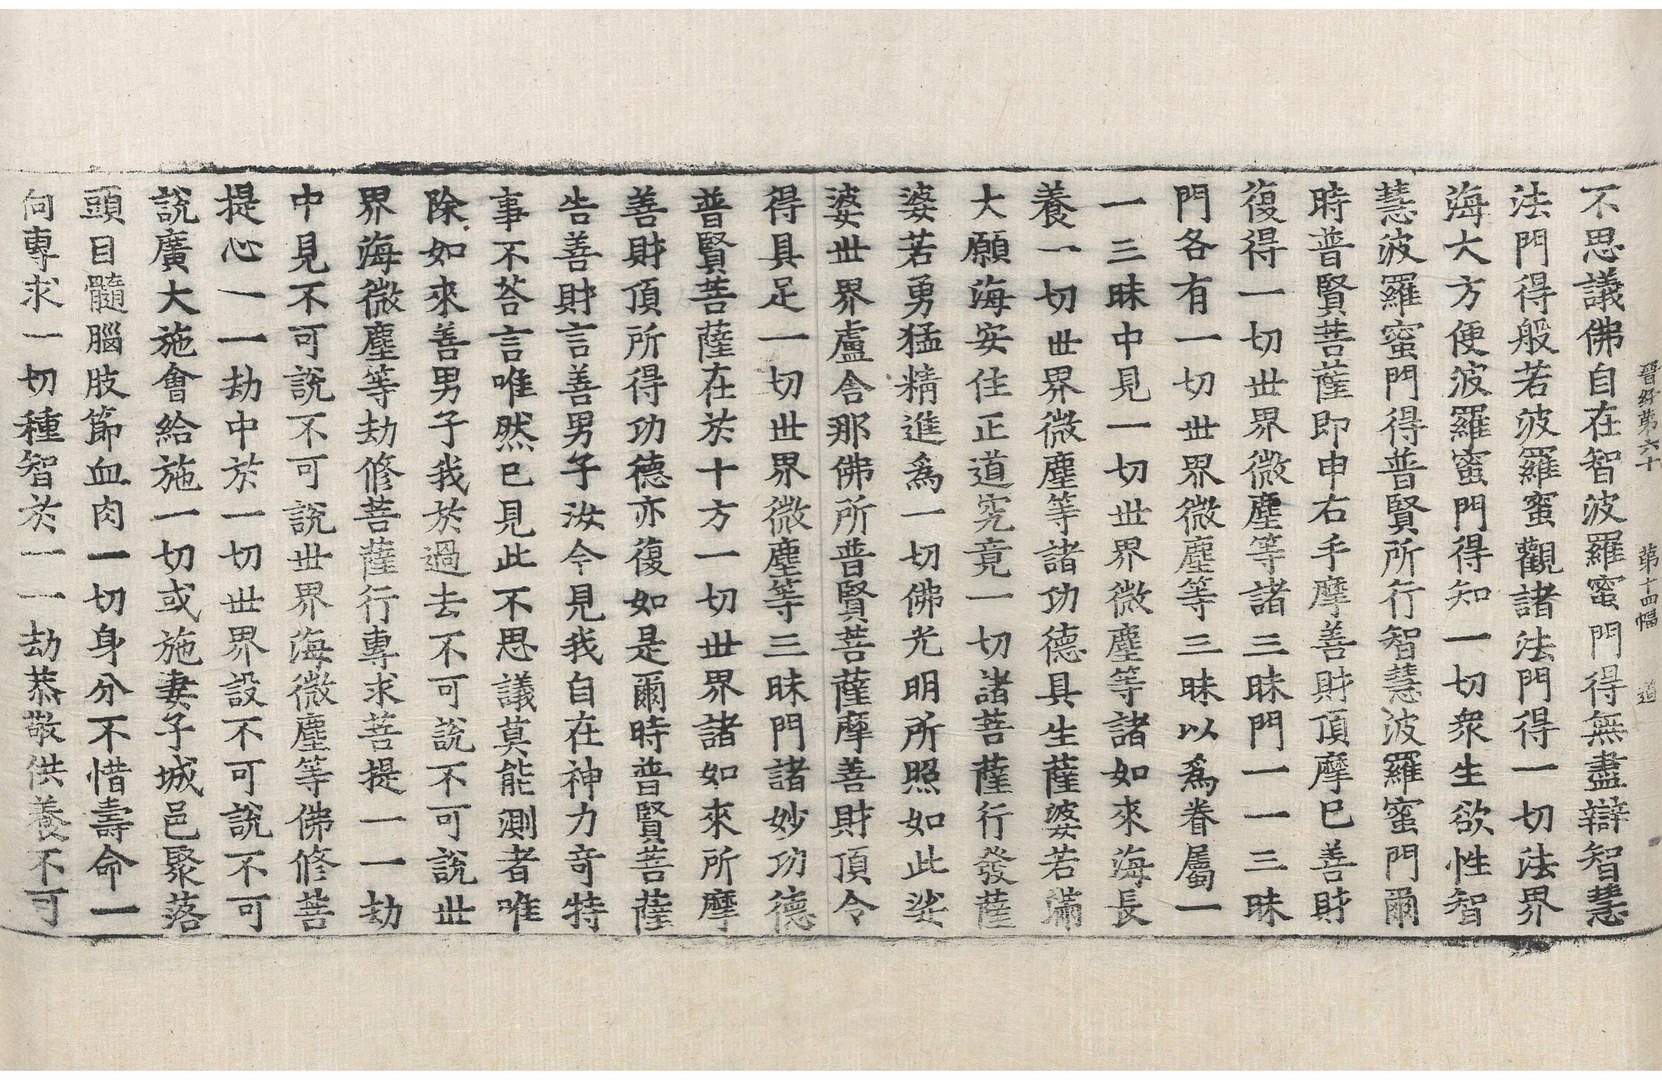 晋經第六十 第十四幅 道
不思議佛自在智波羅蜜門得無盡辯智慧
法門得般若波羅蜜觀諸法門得一切法界
海大方便波羅蜜門得知一切衆生欲性智
慧波羅蜜門得普賢所行智慧波羅蜜門爾
時普賢菩薩即申右手摩善財頂摩已善財
復得一切世界微塵等諸三昧門一一三昧
門各有一切世界微塵等三昧以爲眷屬一
一三昧中見一切世界微塵等諸如來海長
養一切世界微塵等諸功德具生薩婆若滿
大願海安住正道究竟一切諸菩薩行發薩
婆若勇猛精進爲一切佛光明所照如此娑
婆世界盧舍那佛所普賢菩薩摩善財頂令
得具足一切世界微塵等三昧門諸妙功德
普賢菩薩在於十方一切世界諸如來所摩
善財頂所得功德亦復如是爾時普賢菩薩
告善財言善男子汝今見我自在神力奇特
事不荅言唯然已見此不思議莫能測者唯
除如來善男子我於過去不可說不可說世
界海微塵等劫修菩薩行專求菩提一一劫
中見不可說不可說世界海微塵等佛修菩
提心一一劫中於一切世界設不可說不可
說廣大施會給施一切或施妻子城邑聚落
頭目髓腦肢節血肉一切身分不惜壽命一
向專求一切種智於一一劫恭敬供養不可